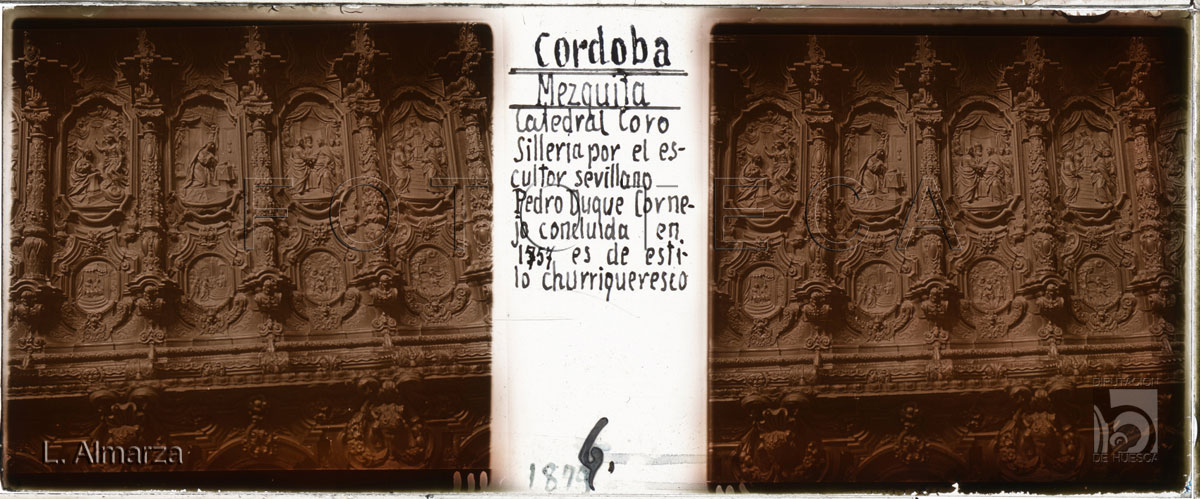 Cordoba
Mezquita
Catedral Coro
Silleria por el es-
cultor sevillano
Pedro Duque Corne-
jo concluida en
1757 es de esti-
lo churrigueresco
6.
L. Almarza
FOTOTECA
DIPUTACIÓN
DE HUESCA